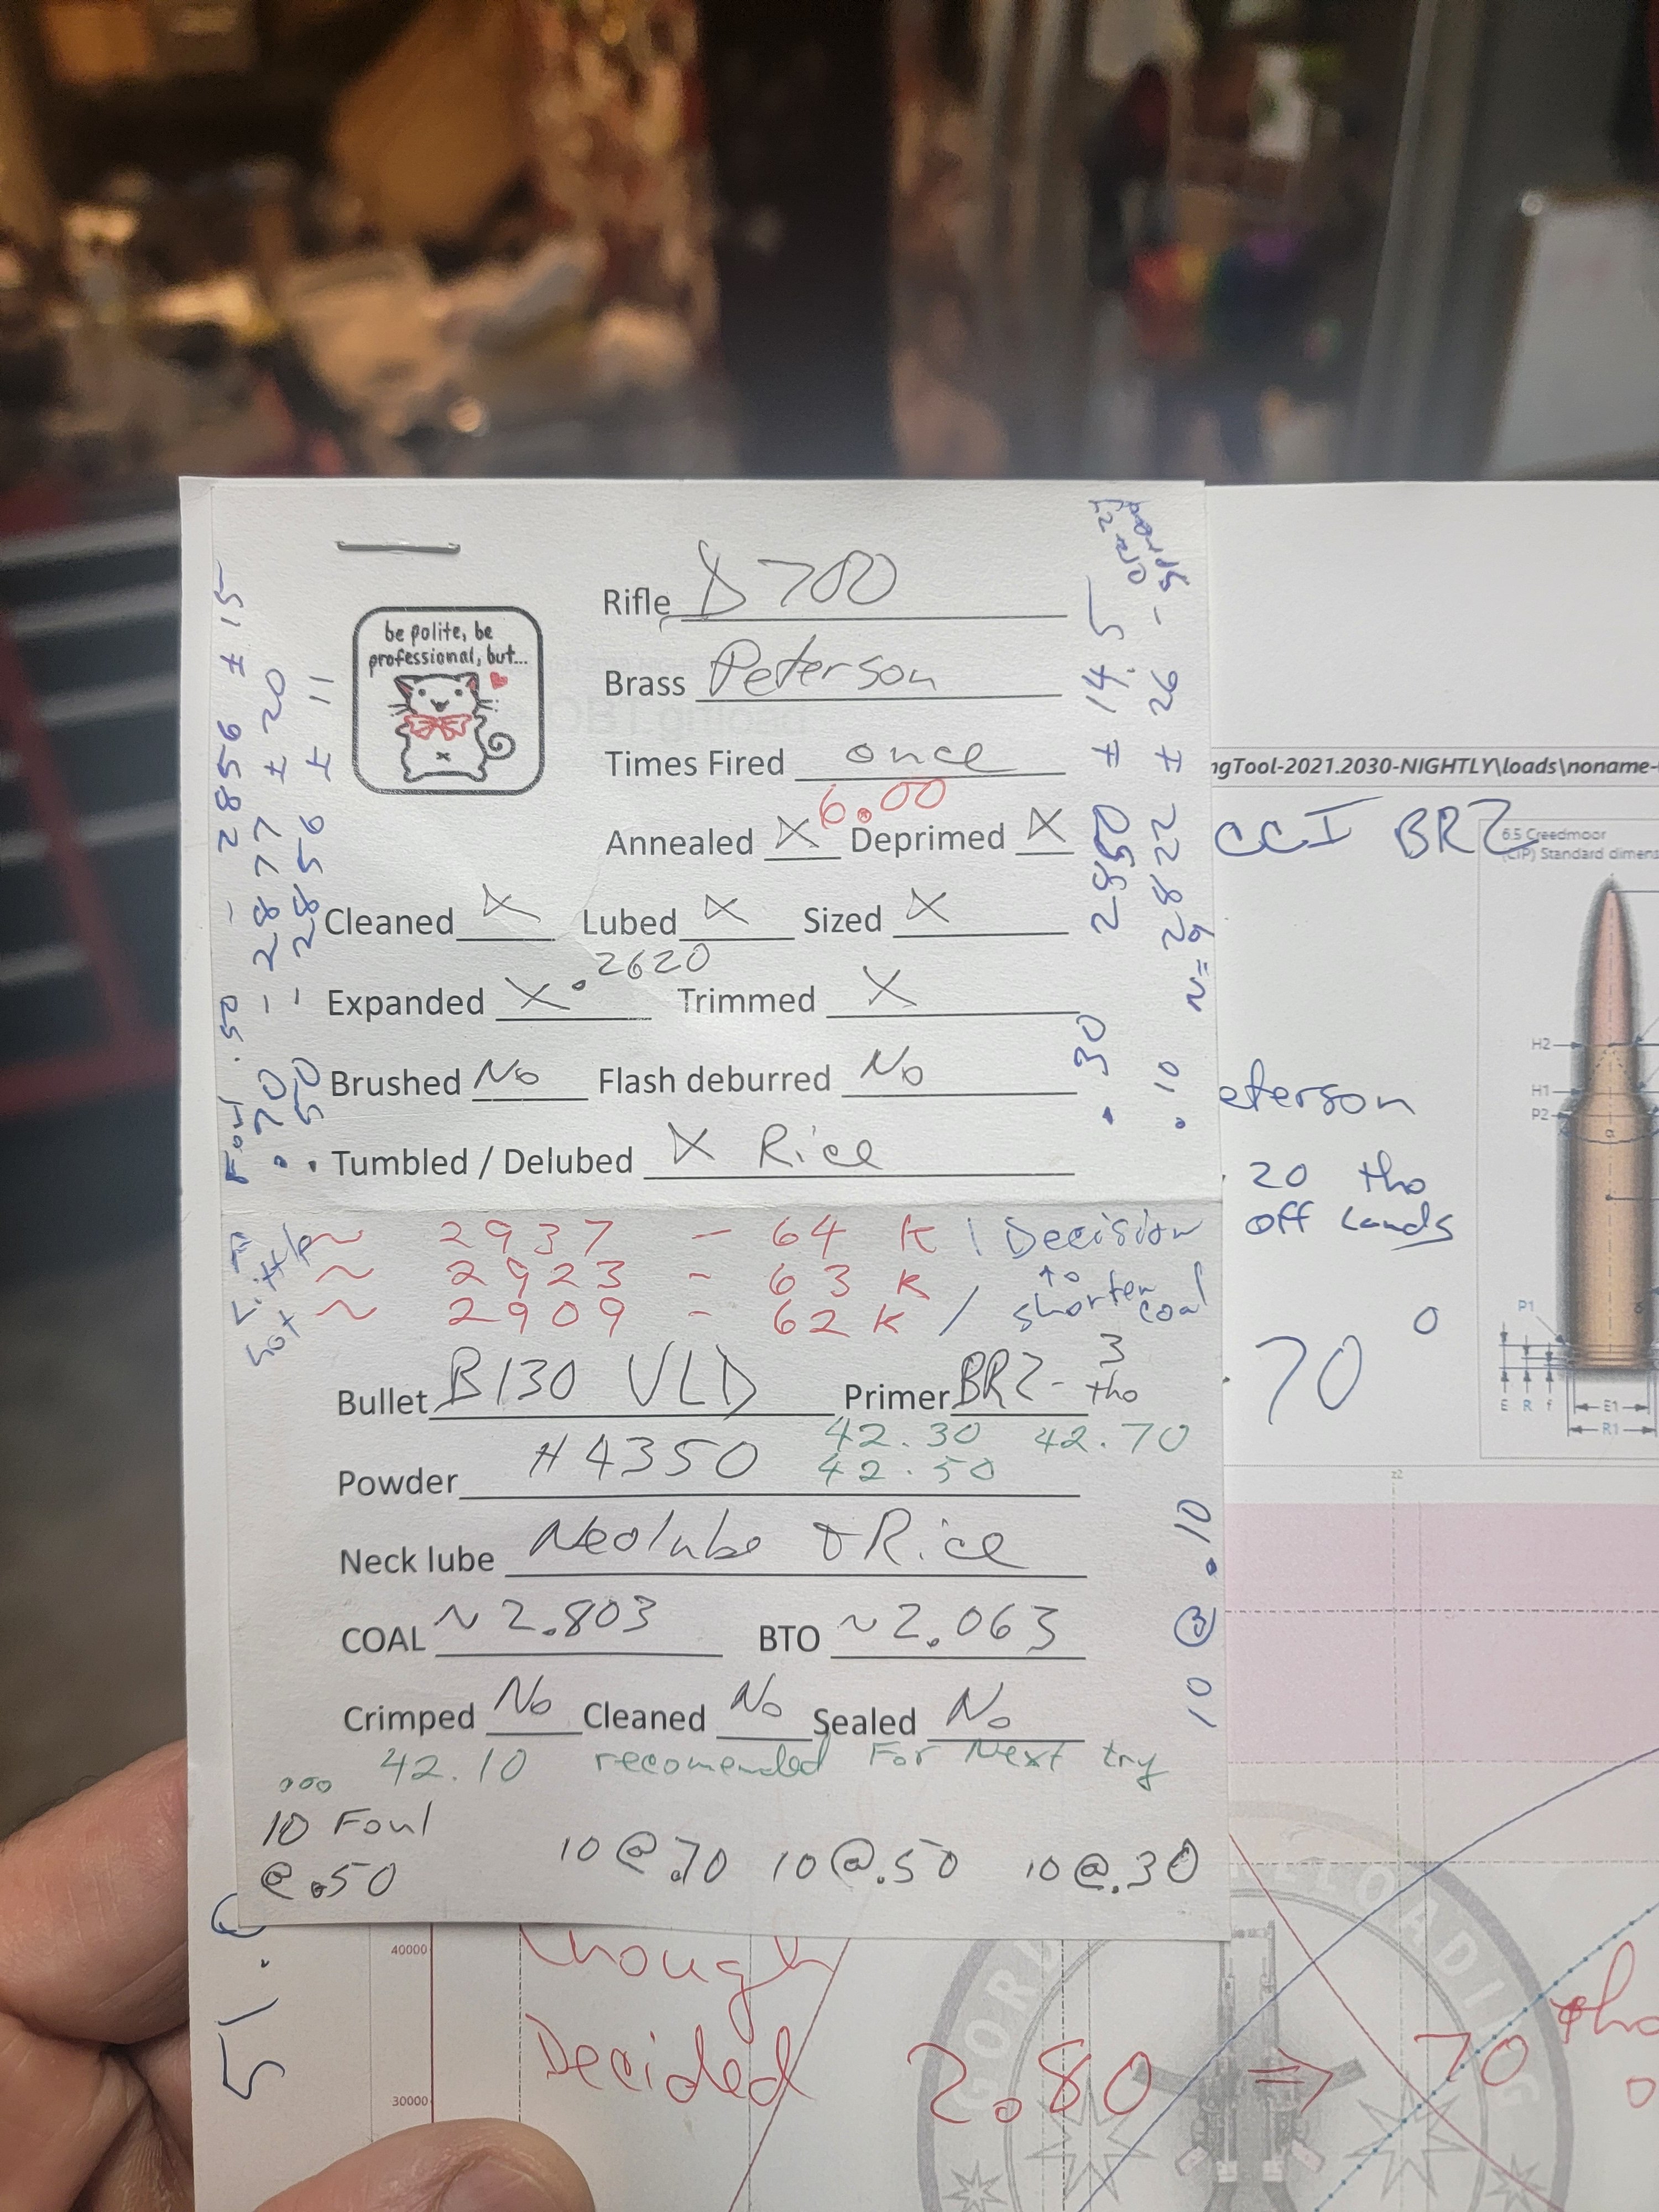 be polite, be
professional, but...
Rifle D700
Brass Peterson
Times Fired once
6.00
Annealed X Deprimed X
Cleaned X Lubed X Sized X
.2620
Expanded X Trimmed X
Brushed No Flash deburred No
Tumbled / Delubed X Rice
Foul .50 - 2856 ± 15
.70 - 2877 ± 20
.50 - 2856 ± 11
.30 2850 ± 14.5
.10 2822 ± 26 -
N=9
~ 2937 - 64 K | Decision
~ 2923 - 63 K / to shorten
~ 2909 - 62 K / coal
Little
hot
Bullet B130 VLD Primer BR2- 3 tho
42.30 42.70
Powder H4350 42.50
Neck lube Neolube & Rice
COAL ~2.803 BTO ~2.063
Crimped No Cleaned No Sealed No
10 @ .10
... 42.10 recomended For Next try
10 Foul
@ .50 10 @ .70 10 @ .50 10 @ .30
ngTool-2021.2030-NIGHTLY\loads\noname-
CCI BR2
6.5 Creedmoor
(CIP) Standard dimens
eterson
20 tho
off Lands
70°
H2
H1
P2
P1
E R f E1
R1
z2
40000
30000
51.
though
Decided 2.80 ⇒ 70 tho
GORD
ELOADING